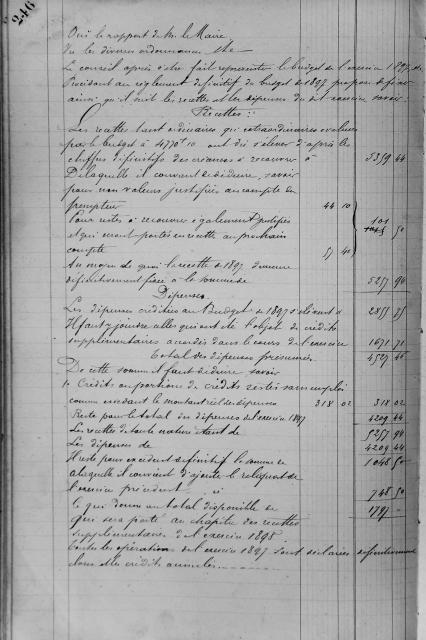 246
Oui le rapport de M. le Maire
Vu les diverses ordonnances
Le conseil après s'être fait représenter le budget de l'exercice 1897
Procédant au règlement définitif du budget de 1897 propose de fixer
ainsi qu'il suit les recettes et les dépenses du dit exercice savoir
Recettes :
Les recettes tant ordinaires qu'extraordinaires évaluées
par le budget à 4770 f 10 ont dû s'élever d'après les
chiffres définitifs des créances à recouvrer à 5359 44
De laquelle il convient de déduire, savoir
pour non valeurs justifiées au compte du
percepteur 44 10
Pour restes à recouvrer également justifiés 101 50
et qui seront portés en recette au prochain
compte 57 40
Au moyen de quoi la recette de 1897 demeure
définitivement fixée à la somme de 5257 94
Dépenses
Les dépenses créditées au Budget de 1897 s'élèvent à 2855 75
Il faut y joindre celles qui ont été l'objet de crédits
supplémentaires accordés dans le cours de l'exercice 1671 71
Total des dépenses présumées 4527 46
De cette somme il faut déduire savoir
1° Crédits ou portions de crédits restés sans emploi
comme excédant le montant réel des dépenses 318 02 318 02
Reste pour le total des dépenses de l'exercice 1897 4209 44
Les recettes de toute nature étant de 5257 94
Les dépenses de 4209 44
Il reste pour excédent définitif la somme de 1048 50
à laquelle il convient d'ajouter le reliquat de
l'exercice précédent à 748 50
ce qui donne un total disponible de 1797 -
qui sera porté au chapitre des recettes
supplémentaires de l'exercice 1898
Toutes les opérations de l'exercice 1897 sont déclarées définitivement
closes et les crédits annulés